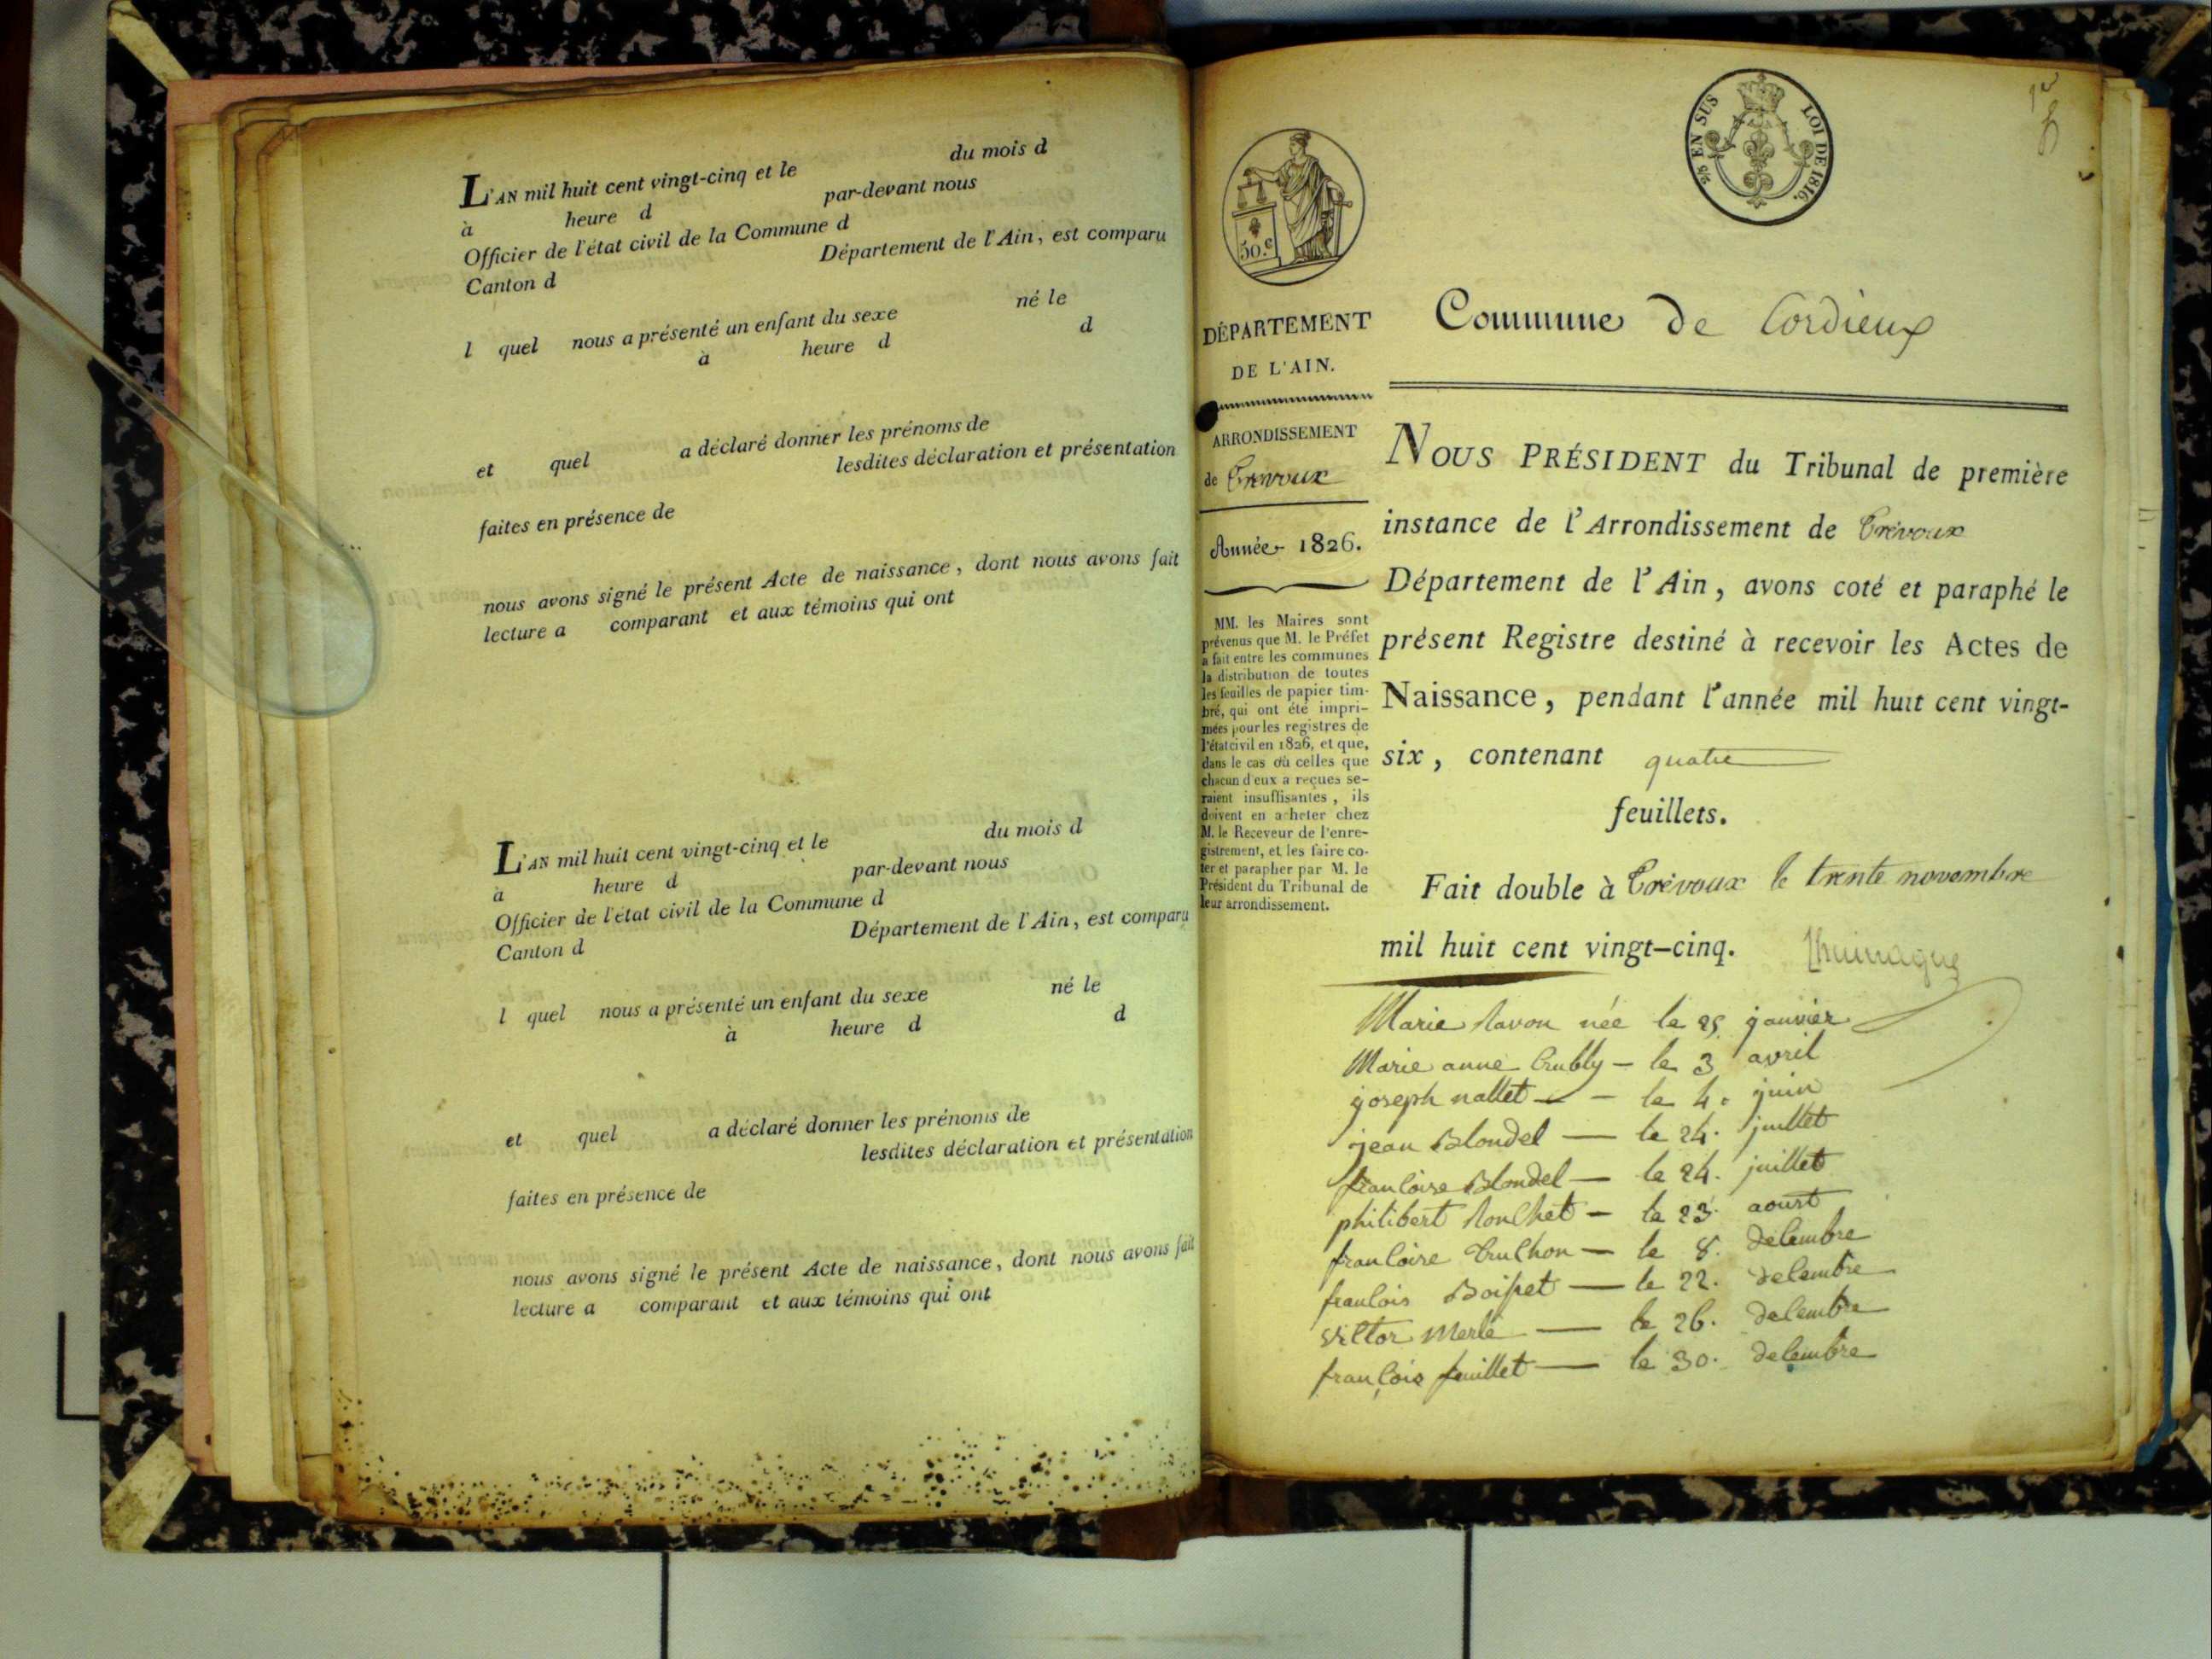 L'AN mil huit cent vingt-cinq et le du mois d
à heure d par-devant nous
Officier de l'état civil de la Commune d
Canton d Département de l'Ain, est comparu
l quel nous a présenté un enfant du sexe né le
à heure d d
et quel a déclaré donner les prénoms de
lesdites déclaration et présentation
faites en présence de
nous avons signé le présent Acte de naissance, dont nous avons fait
lecture a comparant et aux témoins qui ont
L'AN mil huit cent vingt-cinq et le du mois d
à heure d par-devant nous
Officier de l'état civil de la Commune d
Canton d Département de l'Ain, est comparu
l quel nous a présenté un enfant du sexe né le
à heure d d
et quel a déclaré donner les prénoms de
lesdites déclaration et présentation
faites en présence de
nous avons signé le présent Acte de naissance, dont nous avons fait
lecture a comparant et aux témoins qui ont
EN SUS LOI DE 1816.
50.c
DÉPARTEMENT
DE L'AIN.
ARRONDISSEMENT
de Trevoux
Année 1826.
MM. les Maires sont
prévenus que M. le Préfet
a fait entre les communes
la distribution de toutes
les feuilles de papier tim-
bré, qui ont été impri-
mées pour les registres de
l'état civil en 1826, et que,
dans le cas où celles que
chacun d'eux a reçues se-
raient insuffisantes, ils
doivent en acheter chez
M. le Receveur de l'enre-
gistrement, et les faire co-
ter et parapher par M. le
Président du Tribunal de
leur arrondissement.
Commune de Cordieux
NOUS PRÉSIDENT du Tribunal de première
instance de l'Arrondissement de Trévoux
Département de l'Ain, avons coté et paraphé le
présent Registre destiné à recevoir les Actes de
Naissance, pendant l'année mil huit cent vingt-
six, contenant quatre
feuillets.
Fait double à Trévoux le trente novembre
mil huit cent vingt-cinq.
Marie Ravon née le 25 janvier
Marie anne Crubly - le 3 avril
joseph nallet - le 4. juin
jean Blondel - le 24. juillet
francoise Blondel - le 24. juillet
philibert Ronchet - le 23. aoust
francoise Truchon - le 8. decembre
francois Boisset - le 22. decembre
victor Merle - le 26. decembre
françois feuillet - le 30. decembre